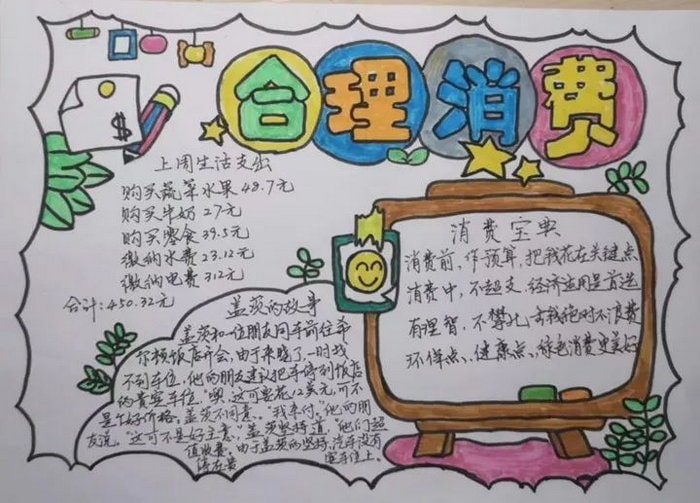 合理消费
$
上周生活支出
购买蔬菜水果48.7元
购买牛奶27元
购买零食39.5元
缴纳水费23.12元
缴纳电费312元
合计:450.32元
消费宝典
消费前,作预算,把钱花在关键点
消费中,不超支,经济适用是首选
有理智,不攀比,去钱绝对不浪费
环保点、健康点、绿色消费更美好
盖茨的故事
盖茨和一位朋友同车前往希
尔顿饭店开会,由于来晚了,一时找
不到车位,他的朋友建议把车停到饭店
的贵宾车位。"噢,这可要花12美元,可不
是个好价格,盖茨不同意。"我来付。"他的朋
友说。"这可不是好主意。"盖茨坚持道,"他们超
值收费。由于盖茨的坚持,汽车没有
停在贵
宾车位上。